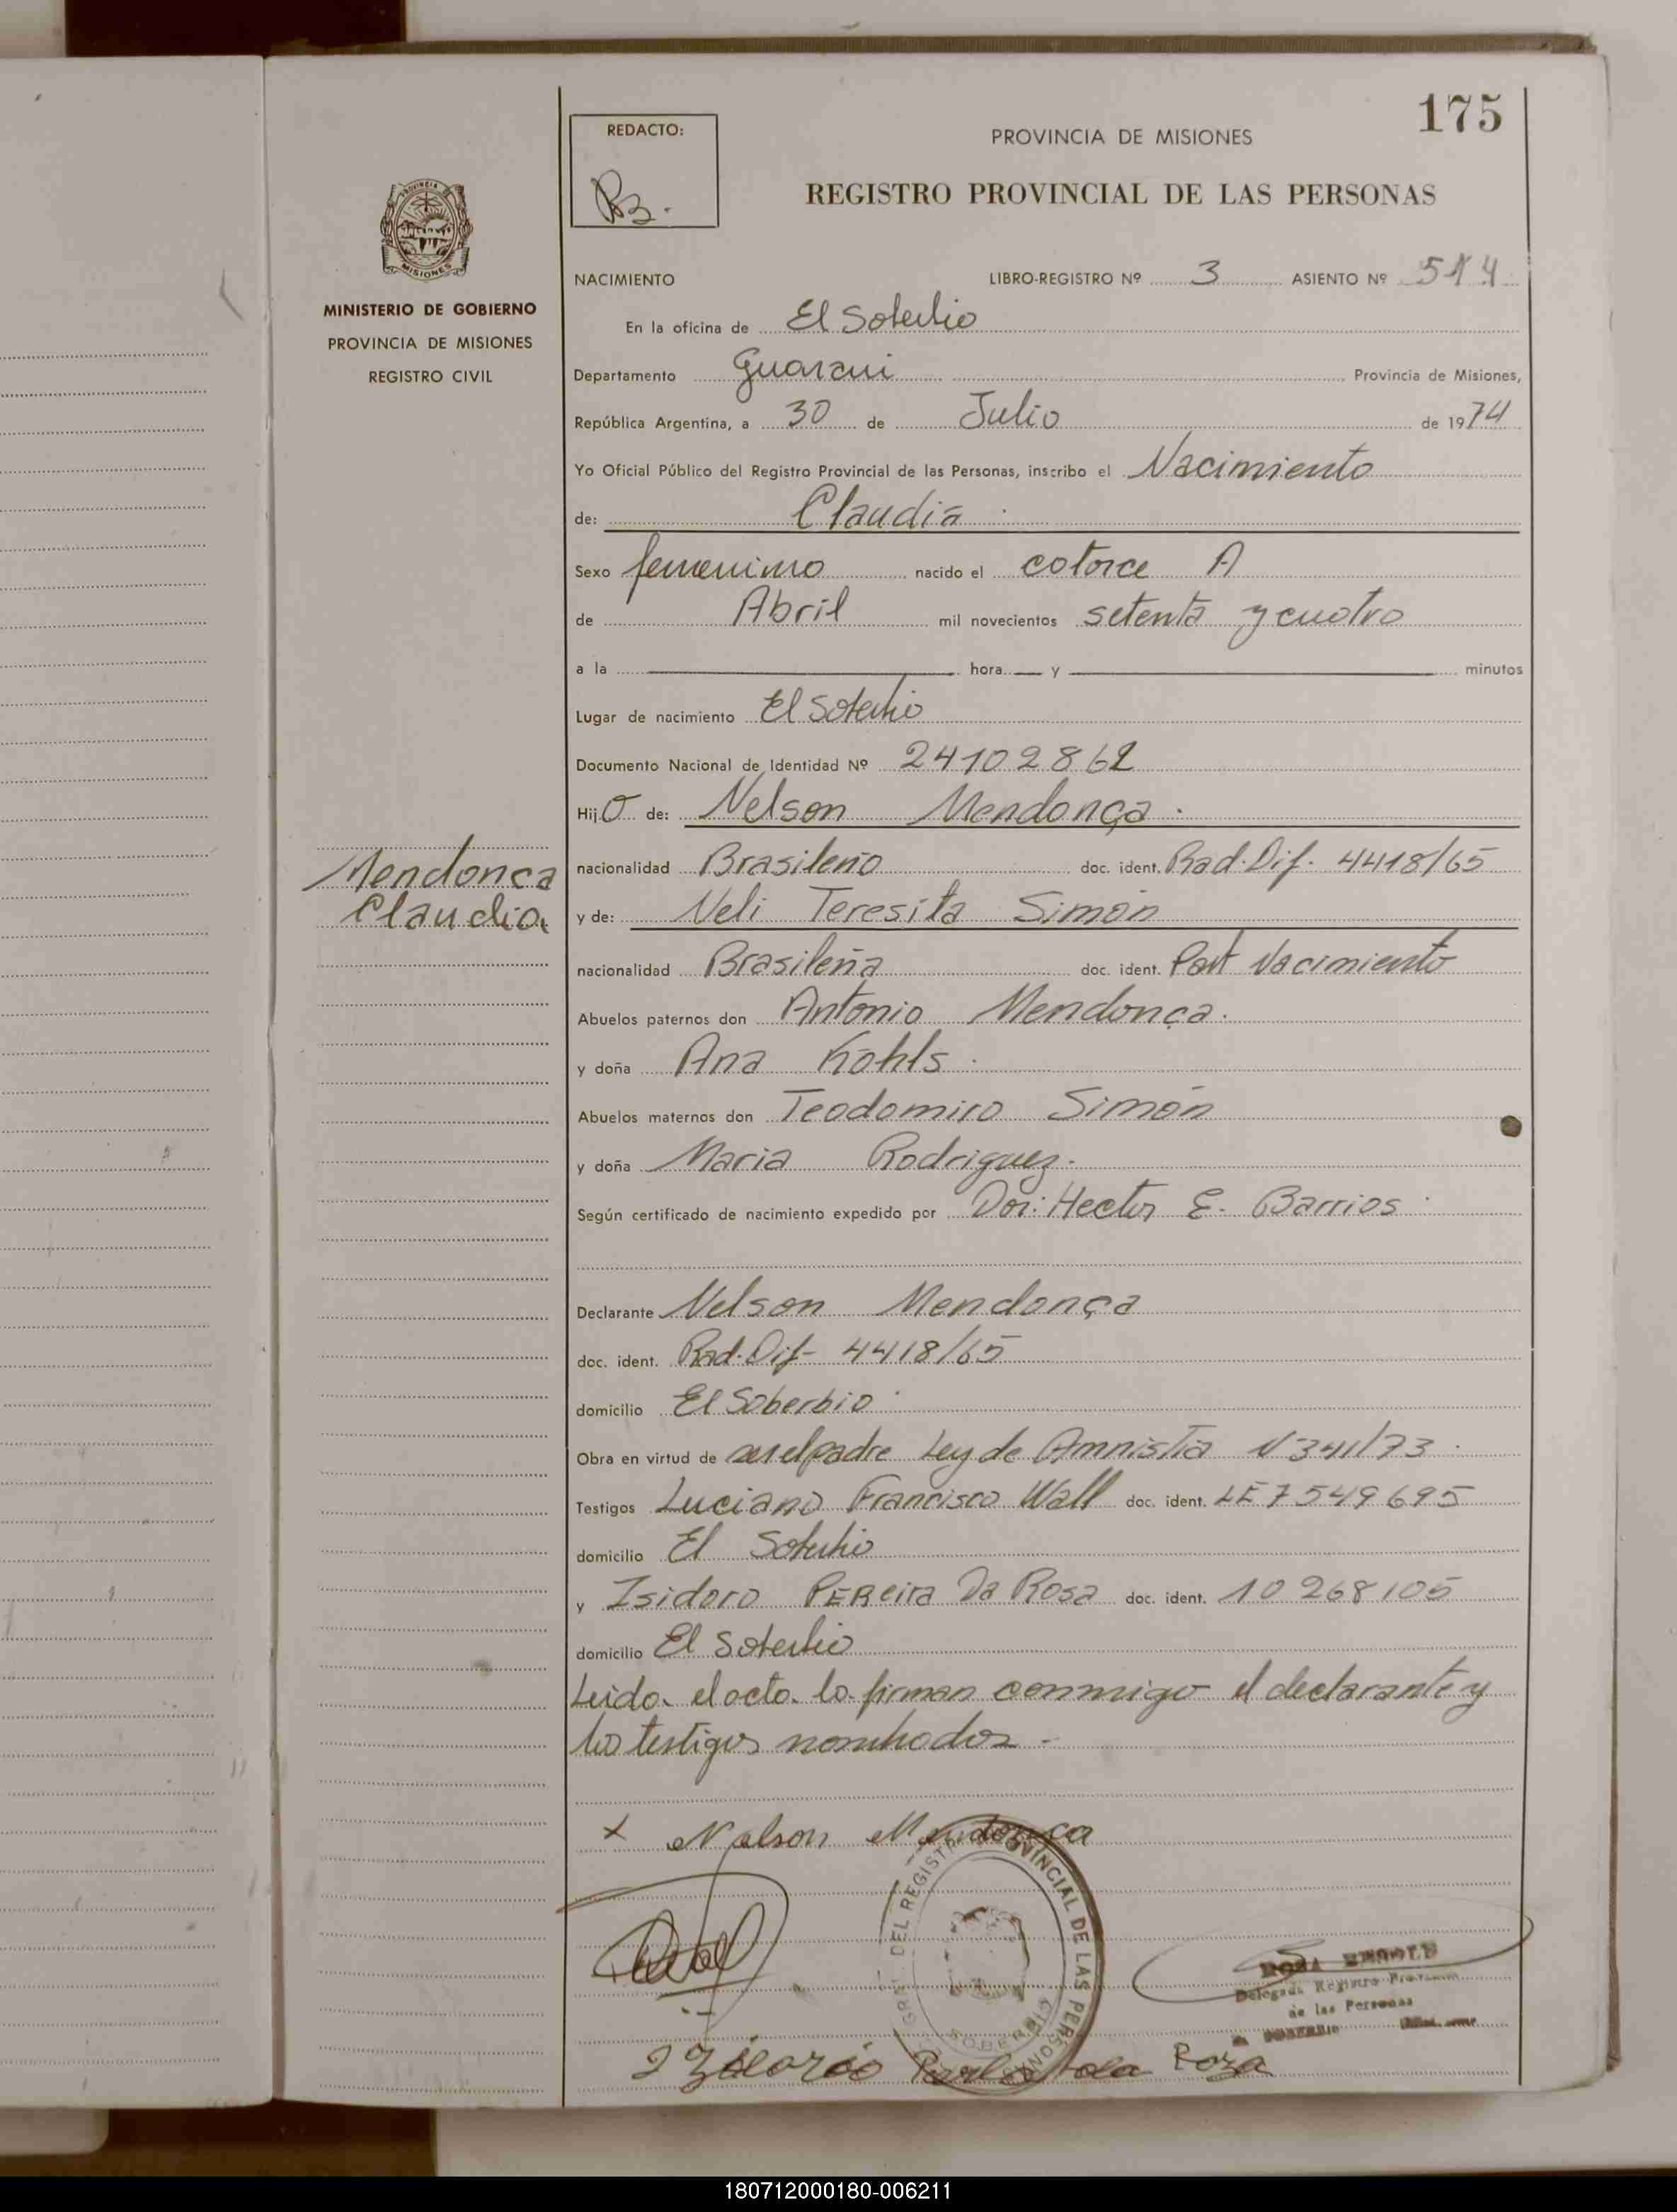 175
REDACTO:
PROVINCIA DE MISIONES
REGISTRO PROVINCIAL DE LAS PERSONAS
MISIONES
MINISTERIO DE GOBIERNO
PROVINCIA DE MISIONES
REGISTRO CIVIL
NACIMIENTO LIBRO-REGISTRO Nº 3 ASIENTO Nº 514
En la oficina de El Soberbio
Departamento Guarani Provincia de Misiones,
República Argentina, a 30 de Julio de 1974
Yo Oficial Público del Registro Provincial de las Personas, inscribo el Nacimiento
de: Claudia
Sexo femenino nacido el catorce A
de Abril mil novecientos setenta y cuatro
a la hora y minutos
Lugar de nacimiento El Soberbio
Documento Nacional de Identidad Nº 24102862
Hijo de: Nelson Mendonça
Mendonca
Claudia
nacionalidad Brasileño doc. ident. Rad. Dif. 4418/65
y de: Neli Teresita Simón
nacionalidad Brasileña doc. ident. Part Nacimiento
Abuelos paternos don Antonio Mendonça.
y doña Ana Kohls
Abuelos maternos don Teodomiro Simón
y doña Maria Rodriguez.
Según certificado de nacimiento expedido por Dor: Hector E. Barrios
Declarante Nelson Mendonça
doc. ident. Rad. Dif- 4418/65
domicilio El Soberbio
Obra en virtud de ser el padre Ley de Amnistia N 341/73
Testigos Luciano Francisco Wall doc. ident. LE 7549695
domicilio El Soberbio
y Isidoro PEReira Da Rosa doc. ident. 10 268105
domicilio El Soberbio
Leido el acto lo firman conmigo el declarante y
los testigos nombrados -
x Nelson Mendonça
DEL REGISTRO PROVINCIAL DE LAS PERSONAS
SOBERBIO
ROSA
Delegada Registro Provincial
de las Personas
SOBERBIO
da Roza
180712000180-006211